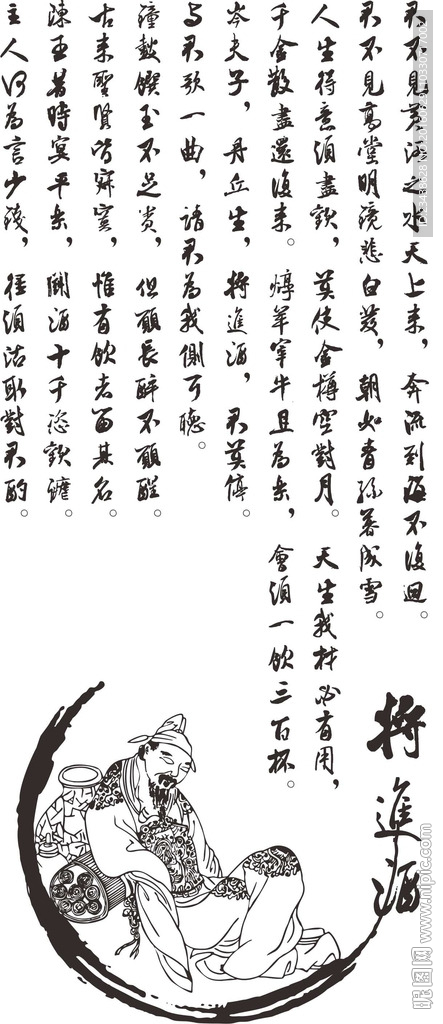 君不見黃河之水天上来，奔流到海不復迴。
君不見高堂明鏡悲白发，朝如青絲暮成雪。
人生得意須盡歡，莫使金樽空對月。天生我材必有用，
千金散盡還復来。烹羊宰牛且為樂，會須一飲三百杯。
岑夫子，丹丘生，將進酒，君莫停。
与君歌一曲，請君為我側耳聽。
鐘鼓饌玉不足貴，但願長醉不願醒。
古来聖賢皆寂寞，惟有飲者留其名。
陳王昔時宴平樂，鬭酒十千恣歡謔。
主人何為言少錢，徑須沽取對君酌。
將進酒
昵图网 www.nipic.com